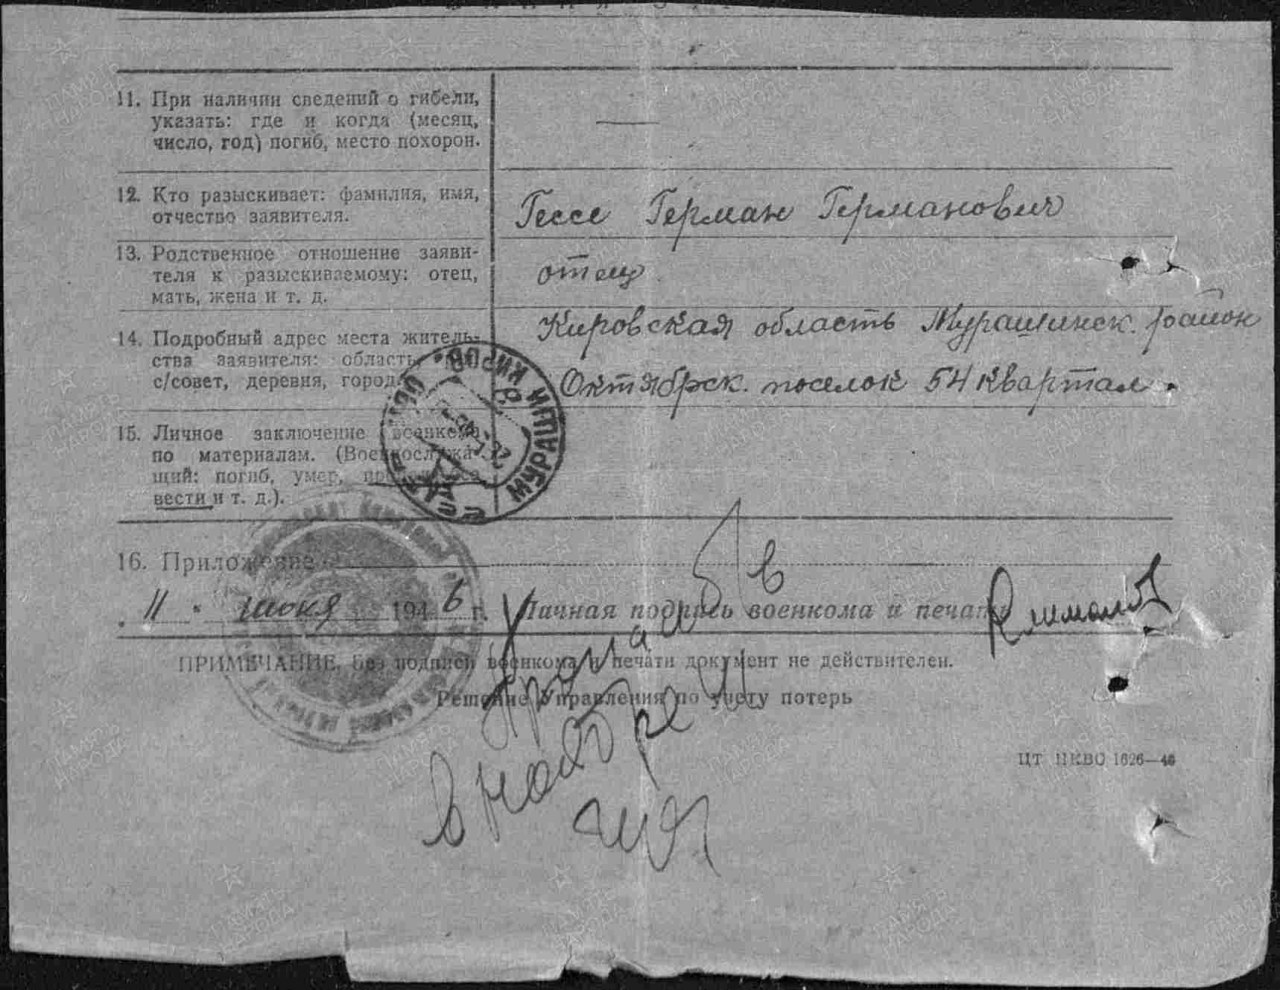 11. При наличии сведений о гибели,
указать: где и когда (месяц,
число, год) погиб, место похорон.
12. Кто разыскивает: фамилия, имя,
отчество заявителя.
Гессе Герман Германович
13. Родственное отношение заяви-
теля к разыскиваемому: отец,
мать, жена и т. д.
отец
14. Подробный адрес места житель-
ства заявителя: область,
с/совет, деревня, город
Кировская область Мурашинск. район
Октябрск. поселок 54 квартал.
15. Личное заключение военкома
по материалам. (Военнослужа-
щий: погиб, умер, пропал без
вести и т. д.).
МУРАШИ КИРОВ.
16. Приложение
11. июня 1946 г. Личная подпись военкома и печать
ПРИМЕЧАНИЕ. Без подписи военкома и печати документ не действителен.
Решение Управления по учету потерь
в ноябре
ЦТ НКВС 1626—46
ПАМЯТЬ НАРОДА